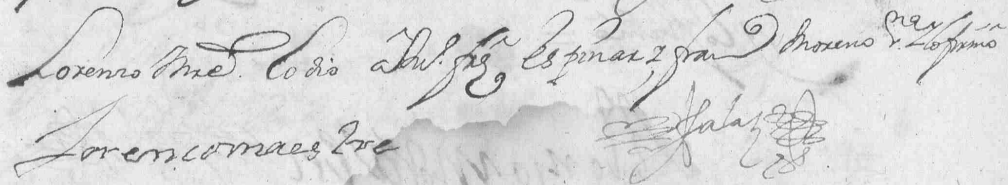 Lorenzo Mre. Lo dio a Ju. frco Espinar y fran Moreno rma y lo firmó
Lorencomaestre Salaz